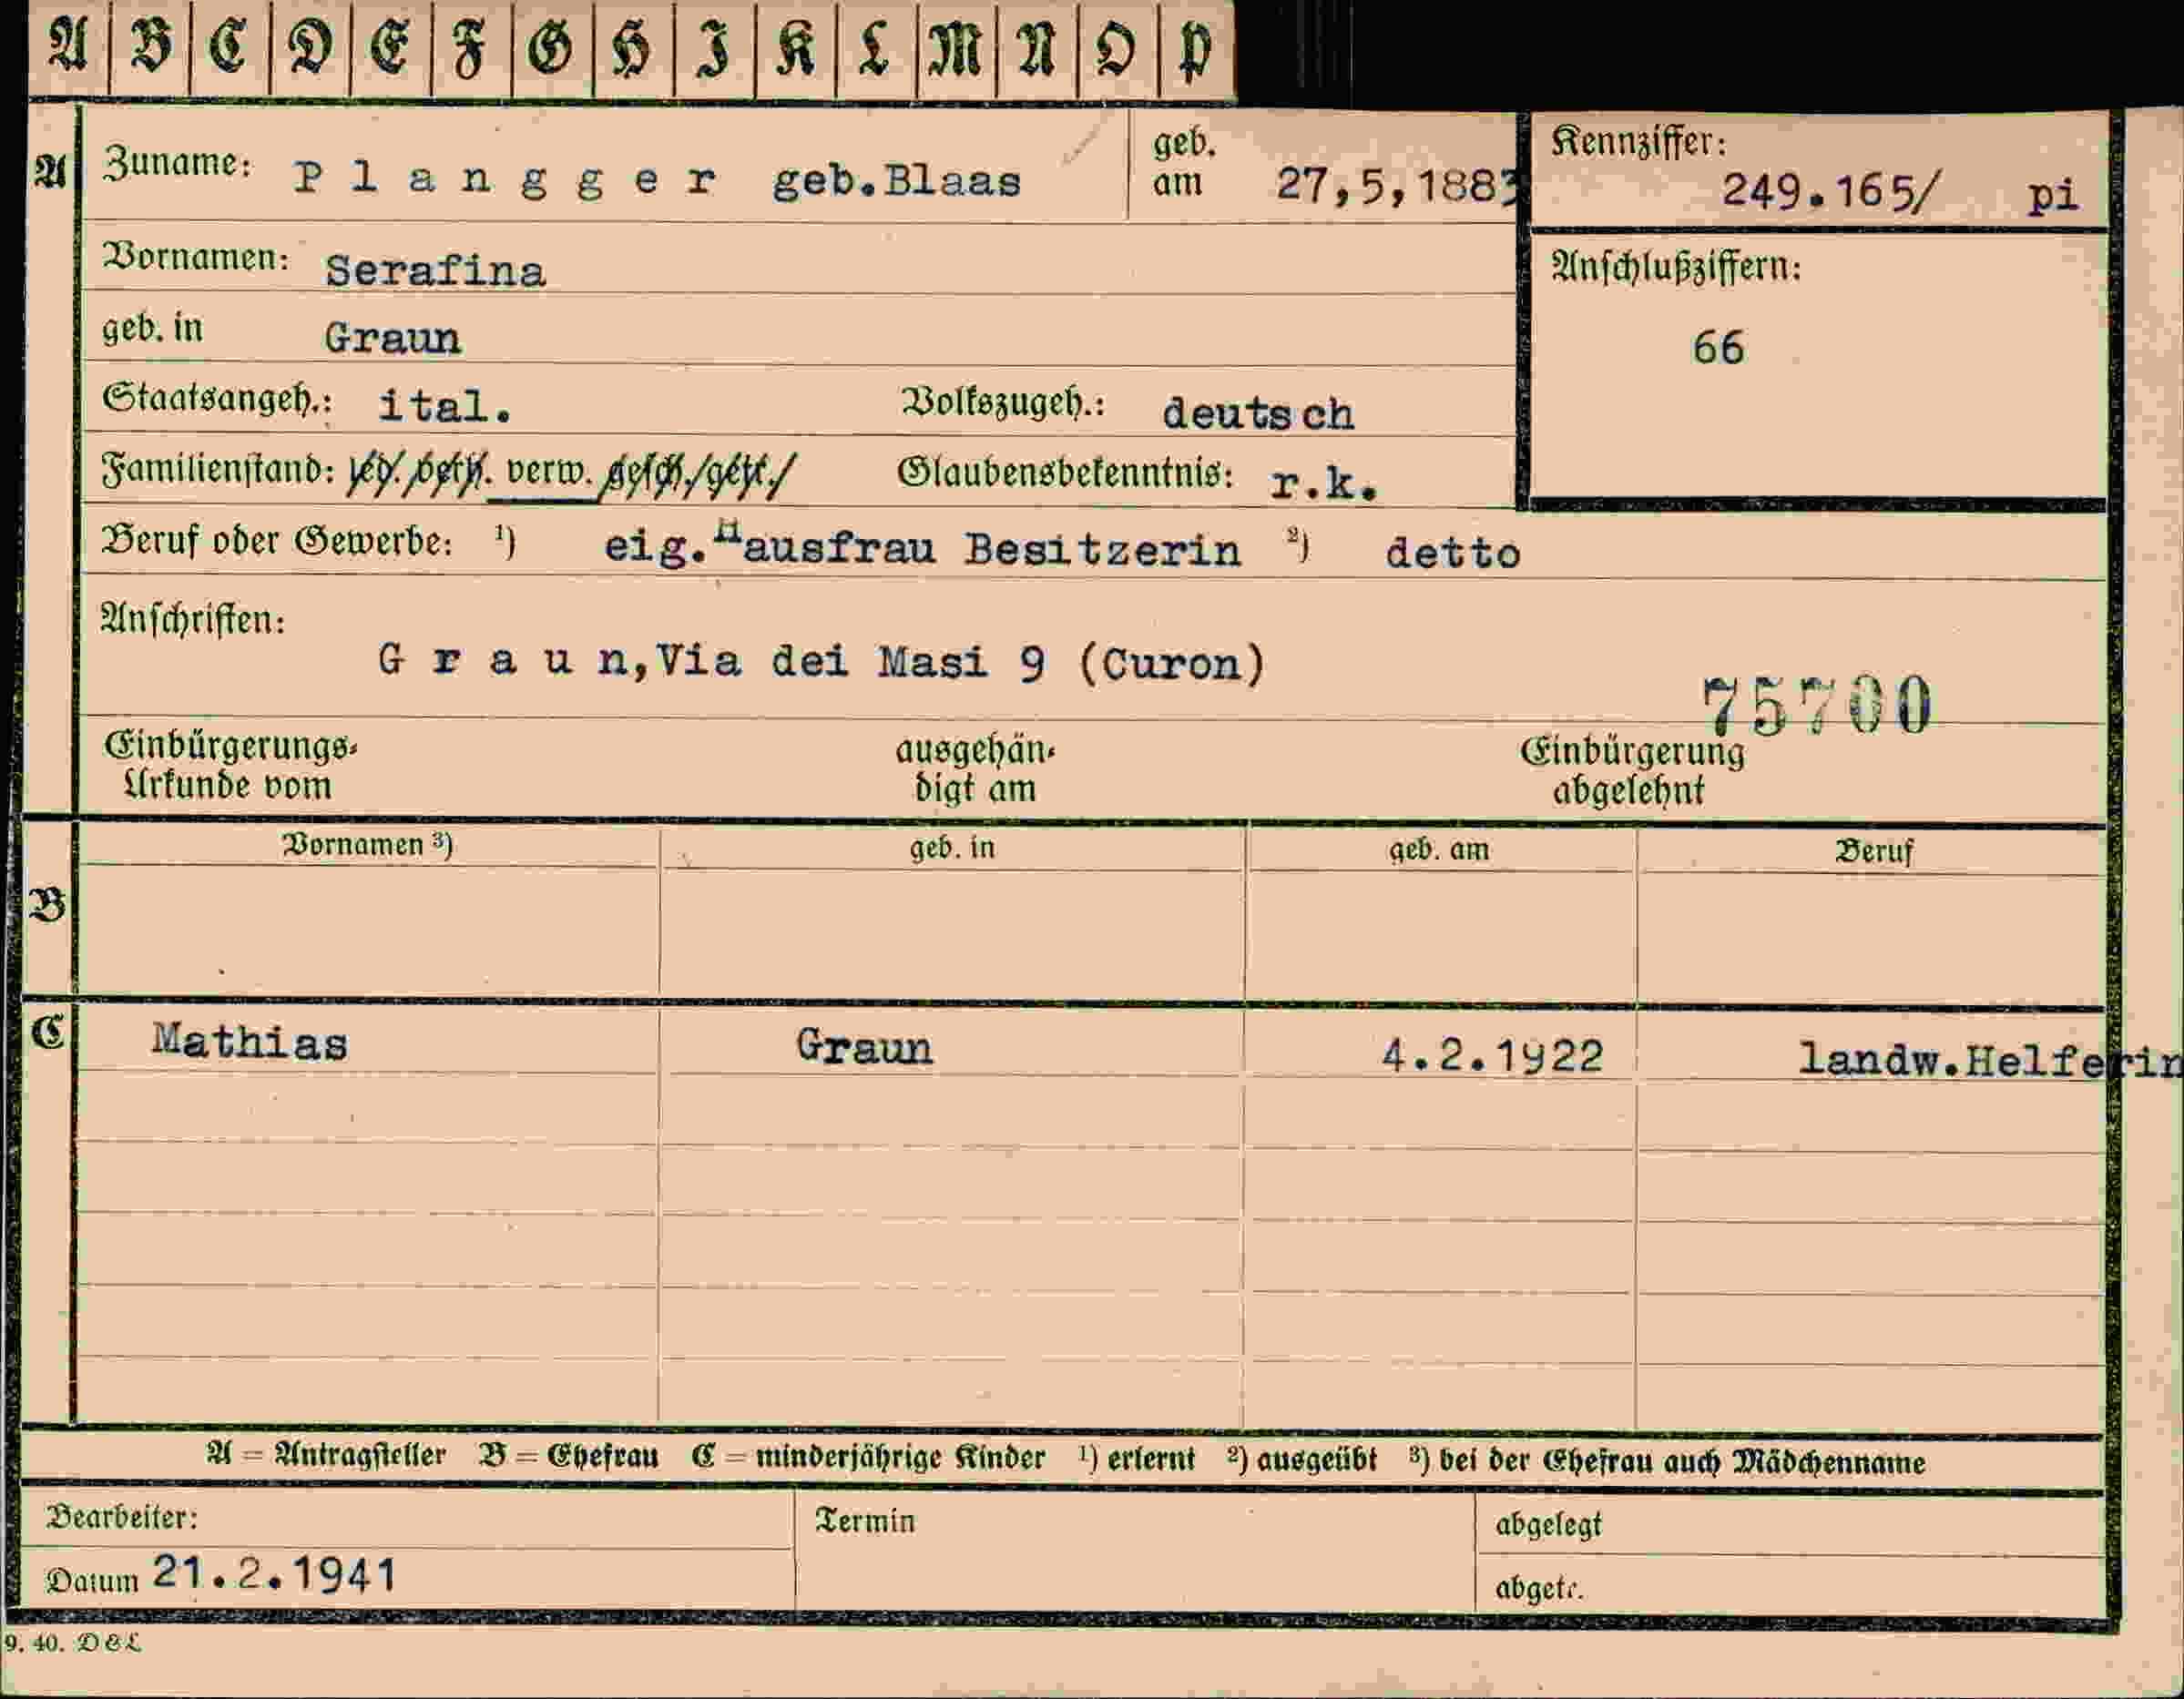 A B C D E F G H I K L M N O P
A
Zuname: P l a n g g e r geb.Blaas
geb. am 27,5,1883
Kennziffer: 249.165/ pi
Vornamen: Serafina
Anschlußziffern:
66
geb. in Graun
Staatsangeh.: ital. Volkszugeh.: deutsch
Familienstand: led. verh. verw. gesch./getr./ Glaubensbekenntnis: r.k.
Beruf oder Gewerbe: ¹) eig.Hausfrau Besitzerin ²) detto
Anschriften:
G r a u n,Via dei Masi 9 (Curon)
75700
Einbürgerungs-
Urkunde vom
ausgehän-
digt am
Einbürgerung
abgelehnt
Vornamen ³) geb. in geb. am Beruf
B
C Mathias Graun 4.2.1922 landw.Helferin
A = Antragsteller B = Ehefrau C = minderjährige Kinder ¹) erlernt ²) ausgeübt ³) bei der Ehefrau auch Mädchenname
Bearbeiter: Termin abgelegt
Datum 21.2.1941 abgetr.
9. 40. D & L